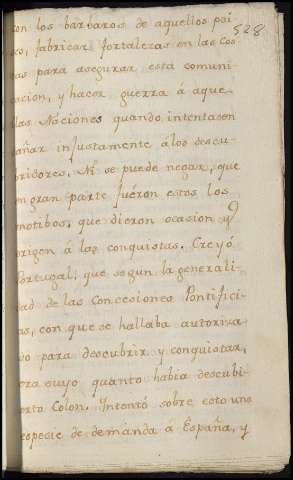 con los barbaros de aquellos pai
528
ses, fabricar fortalezas en las Cos
tas para asegurar esta comuni
cacion, y hacer guerra á aque
llas Náciones quando intentasen
dañar injustamente álos descu
bridores. Ni se puede negar, que
en gran parte fuéron estos los
motibos, que dieron ocasion y
origen á las conquistas. Creyó
Portugal, que segun la generali
dad de las Concesiones Pontifici
as, con que se hallaba autoriza
do para descubrir y conquistar,
era suyo quanto habia descubi
erto Colon. Intentó sobre esto una
especie de demanda á España, y